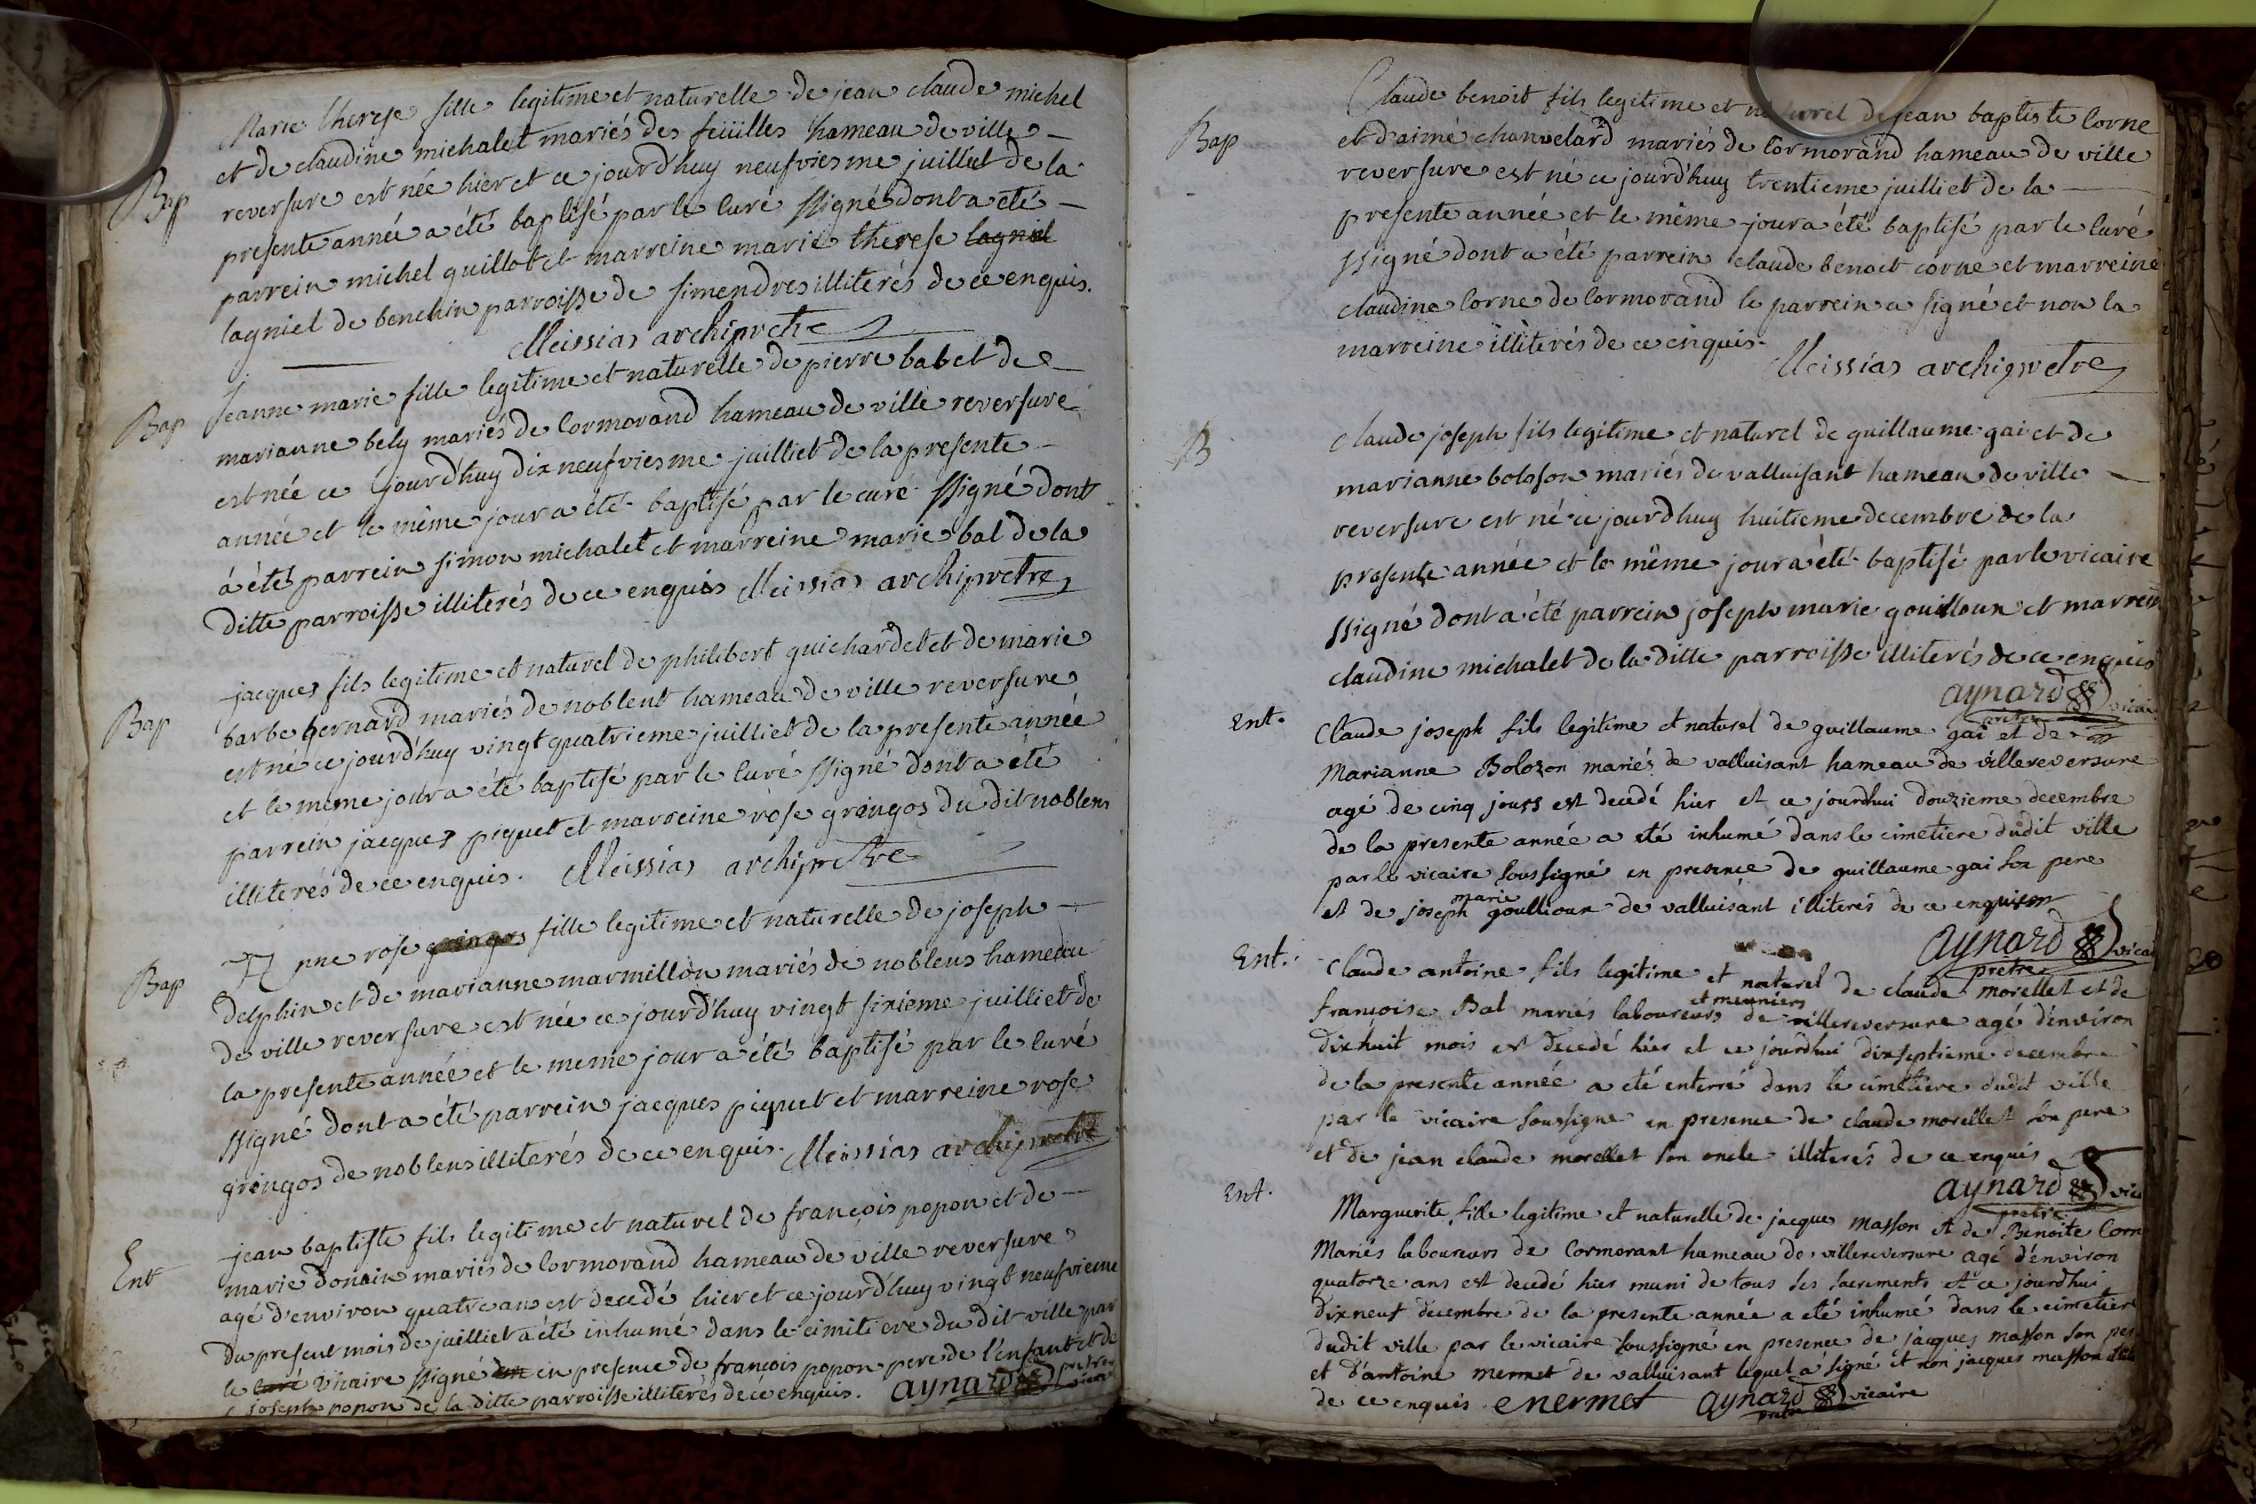 Marie therese fille legitime et naturelle de jean claude michel
Bap
et de claudine michalet mariés des feüilles hameau de ville
reversure est née hier et ce jourd'huy neufviesme juilliet de la
presente année a été baptisé par le curé ssigné dont a eté
parrein michel guillot et marreine marie therese lagniel
lagniel de benchin parroisse de simendres illiterés de ce enquis.
Meissias archipretre
Bap
Jeanne marie fille legitime et naturelle de pierre babet de
marianne bely mariés de Cormorand hameau de ville reversure
est née ce jourd'huy dix neufviesme juilliet de la presente
année et le même jour a été baptisé par le curé ssigné dont
á été parrein simon michalet et marreine marie bal de la
ditte parroisse illiterés de ce enquis Meissias archipretre
Bap
jacques fils legitime et naturel de philibert guichardet et de marie
barbe bernard mariés de noblent hameau de ville reversure
est né ce jourd'huy vingt quatrieme juilliet de la presente année
et le même jour a été baptisé par le curé ssigné dont a été
parrein jacques piquet et marreine rose gringos du dit noblens
illiterés de ce enquis. Meissias archipretre
Bap
rose gringos fille legitime et naturelle de joseph
delphin et de marianne marmillon mariés de noblens hameau
de ville reversure est née ce jourd'huy vingt sixieme juilliet de
la presente année et le meme jour a été baptisé par le curé
ssigné dont a été parrein jacques piquet et marreine rose
gringos de noblens illiterés de ce enquis. Meissias archipretre
Ent
jean baptiste fils legitime et naturel de françois popon et de
marie donain mariés de Cormorand hameau de ville reversure
agé d'environ quatre ans est decedé hier et ce jourd'huy vingt neufvieme
du present mois de juilliet a été inhumé dans le cimitiere du dit ville par
le curé vicaire ssigné en presence de françois popon pere de l'enfant et de
joseph popon de la ditte parroisse illiterés de ce enquis. aynard pretre
vicaire
Bap
Claude benoit fils legitime et naturel de jean baptiste Corne
et d'aimé chanvelard mariés de Cormorand hameau de ville
reversure est né ce jourd'huy trentieme juilliet de la
presente année et le même jour a été baptisé par le curé
ssigné dont a été parrein claude benoit corne et marreine
claudine Corne de Cormorand le parrein a signé et non la
marreine illiterés de ce enquis.
Meissias archipretre
B
claude joseph fils legitime et naturel de guillaume gai et de
marianne boloson mariés de valluisant hameau de ville
reversure est né ce jourd'huy huitieme decembre de la
presente année et le même jour a été baptisé par le vicaire
ssigné dont a été parrein joseph marie gouilloux et marrein
claudine michalet de la ditte parroisse illiterés de ce enquis
aynard vicaire
pretre
Ent.
Claude joseph fils legitime et naturel de guillaume gai et de
Marianne Bolozon mariés de valluisant hameau de villereversure
agé de cinq jours est decedé hier et ce jourdhui douzieme decembre
de la presente année a eté inhumé dans le cimetiere dudit ville
par le vicaire soussigné en presence de guillaume gai son pere
et de joseph marie goullioux de valluisant illiterés de ce enquis
aynard vicaire
pretre
Ent.
Claude antoine fils legitime et naturel de claude morellet et de
françoise Bal mariés laboureurs et meuniers de villereversure agé d'environ
dixhuit mois est decedé hier et ce jourdhui dixseptieme decembre
de la presente année a eté enterré dans le cimetiere dudit ville
par le vicaire soussigné en presence de claude morellet son pere
et de jean claude morellet son oncle illiterés de ce enquis
aynard vicaire
pretre
Ent.
Marguerite fille legitime et naturelle de jacques masson et de Benoite Corne
Mariés laboureurs de Cormorant hameau de villereversure agé d'environ
quatorze ans est decedé hier muni de tous les sacrements et ce jourdhui
dixneuf decembre de la presente année a eté inhumé dans le cimetiere
dudit ville par le vicaire soussigné en presence de jacques masson son pere
et d'antoine mermet de valluisant lequel a signé et non jacques masson
de ce enquis mermet aynard vicaire
pretre